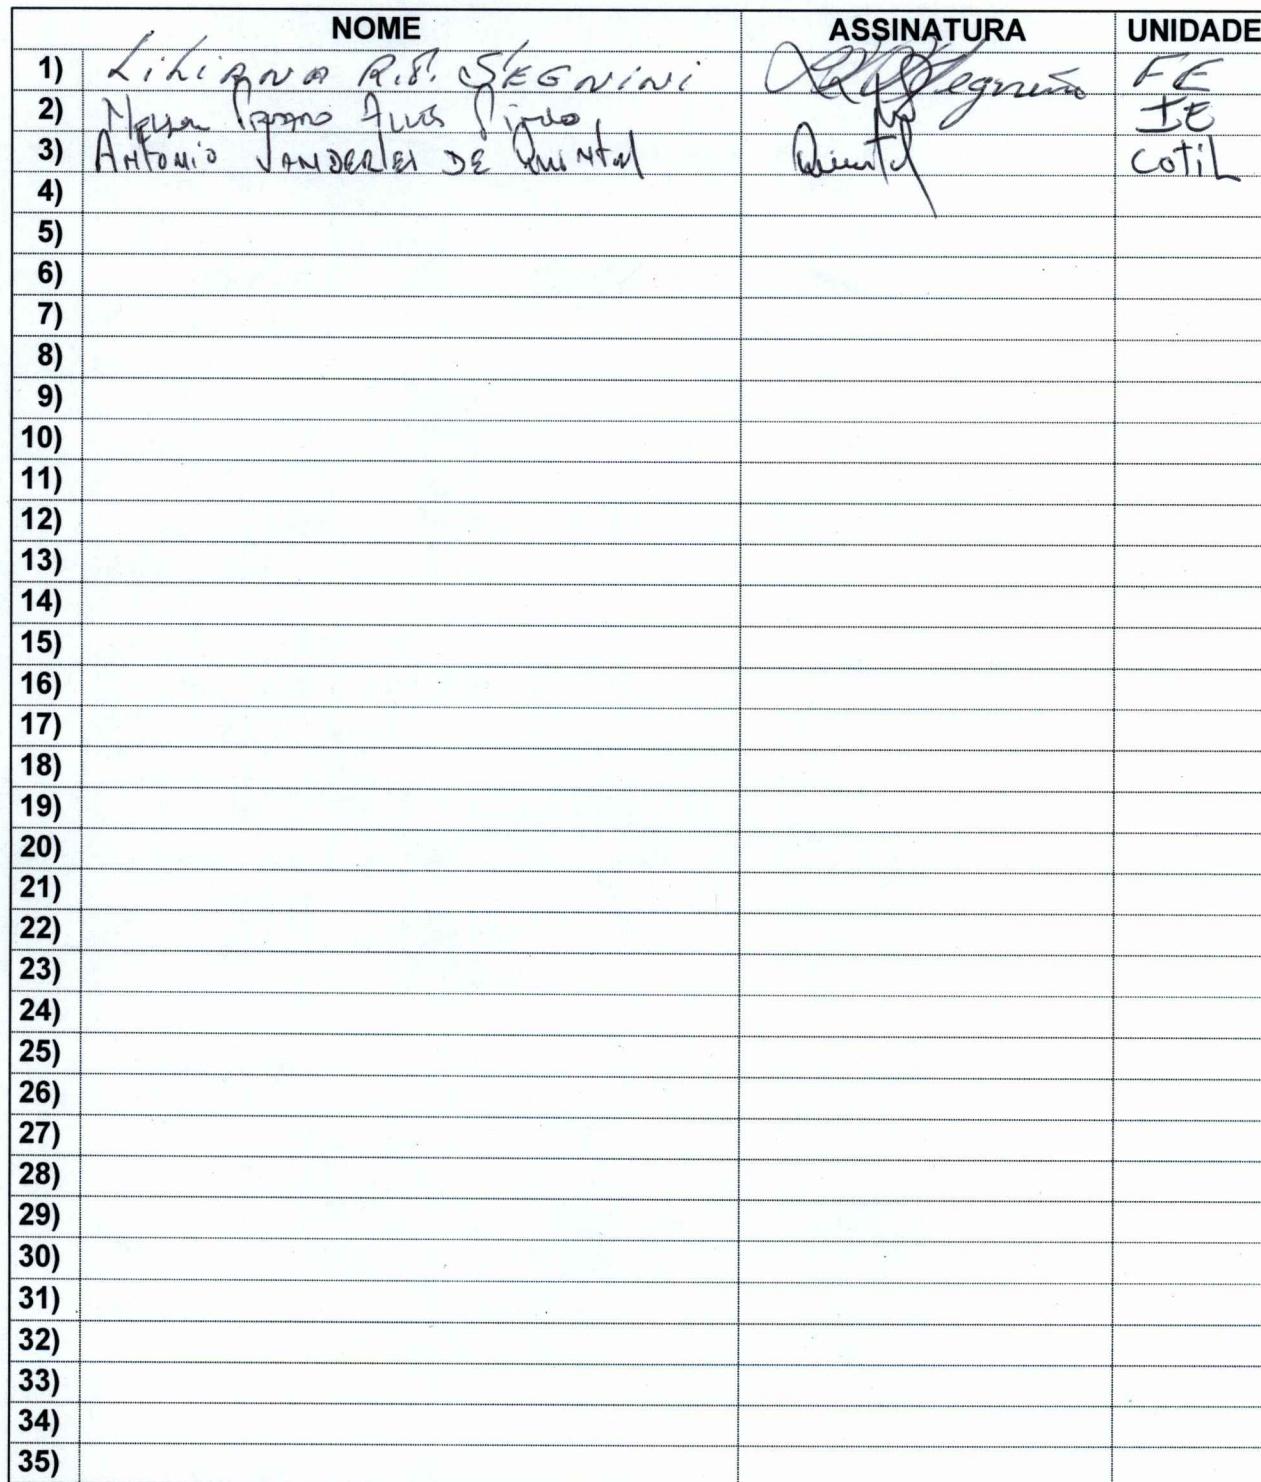 NOME ASSINATURA UNIDADE
1) LiLiANA R.P. SEGNiNi Segnini FE
2) Alves IE
3) Antonio VANDERLEI DE Quintal Quintal cotiL
4)
5)
6)
7)
8)
9)
10)
11)
12)
13)
14)
15)
16)
17)
18)
19)
20)
21)
22)
23)
24)
25)
26)
27)
28)
29)
30)
31)
32)
33)
34)
35)